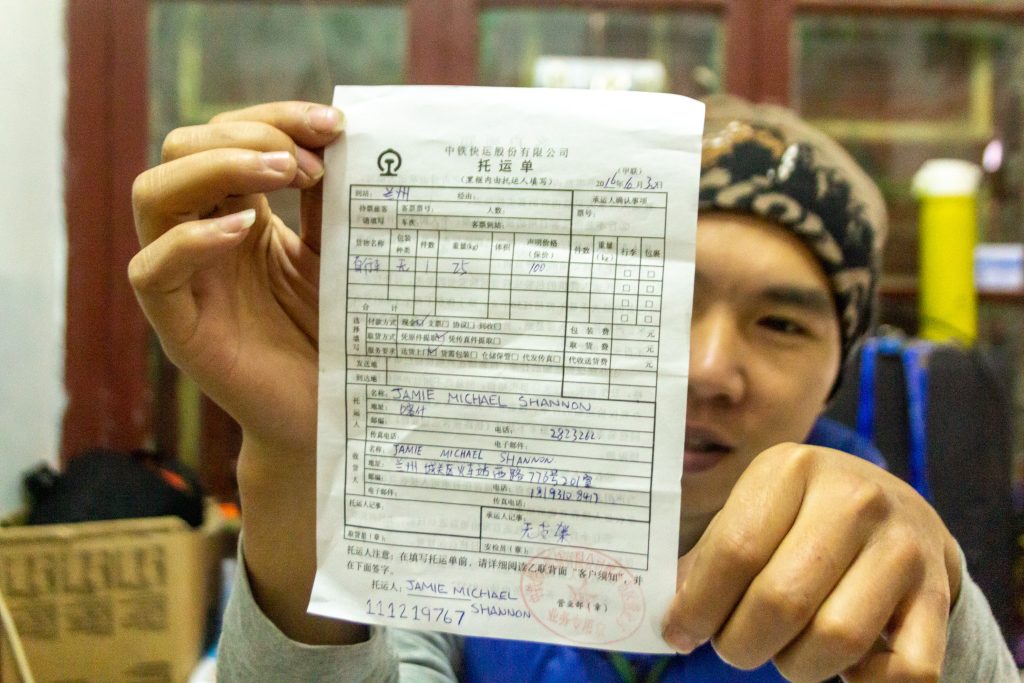 中铁快运股份有限公司
托运单
(甲联)
(黑框内由托运人填写) 2016年6月3日
到站: 兰州 经由: 承运人确认事项
持票旅客 客票票号: 人数: 票号:
请填写 车次 客票到站:
货物名称 包装种类 件数 重量(kg) 体积 声明价格(保价) 件数 重量(kg) 行李 包裹
自行车 无 1 25 100 □ □
□ □
□ □
合计 □ □
选择填写 付款方式 现金☑ 支票□ 协议□ 到付□ 包装费 元
取货方式 凭原件提取☑ 凭传真件提取□ 取货费 元
服务要求 送货上门☑ 货需包装□ 仓储保管□ 代发传真□ 代收送货费 元
发送地
到达地
托运人 名称: JAMIE MICHAEL SHANNON
地址: 喀什
邮编: 电话: 2823262
传真电话: 电子邮件:
收货人 名称: JAMIE MICHAEL SHANNON
地址: 兰州 城关区火车站西路776号201室
邮编: 电话:
电子邮件: 传真电话:
托运人记事: 承运人记事:
无货架
收货员(章): 安检员(章):
托运人注意: 在填写托运单前, 请详细阅读乙联背面“客户须知”, 并
在下面签字。
托运人: JAMIE MICHAEL
SHANNON 营业部(章)
111219767
业务专用章